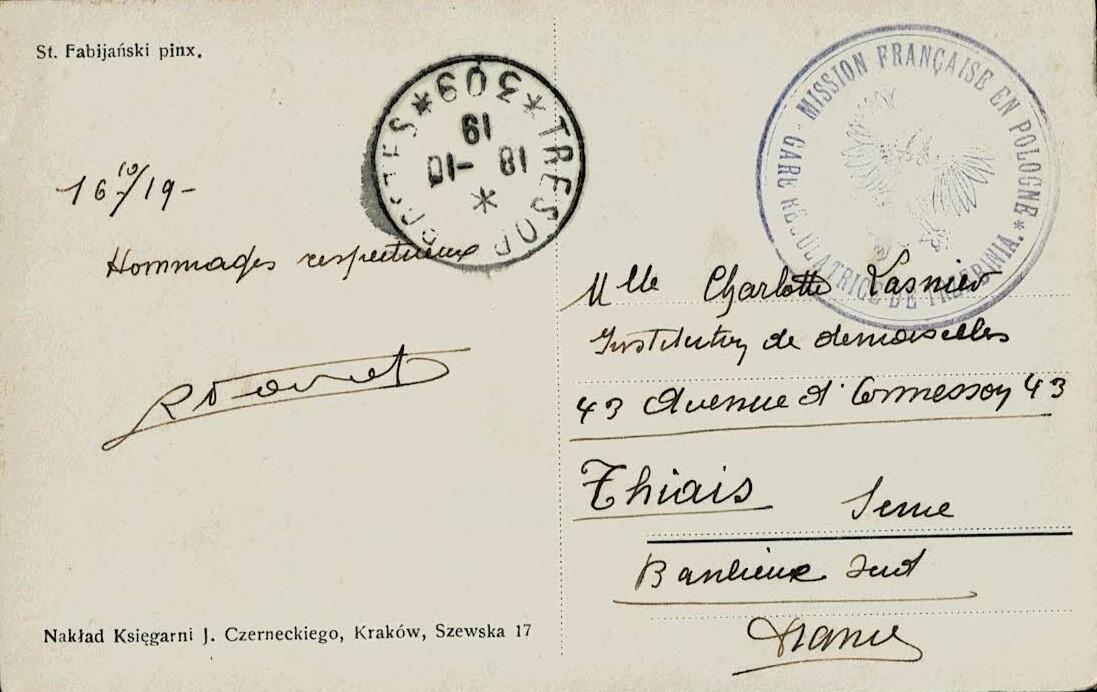 St. Fabijański pinx.
TRESOR ET POSTES * 309 *
18 -10
19
*
MISSION FRANÇAISE EN POLOGNE * GARE REGULATRICE DE TRZEBINIA.
16 10/19 -
Hommages respectueux
Mlle Charlotte Lasnier
Institution de demoiselles
43 Avenue d'Ormesson 43
Thiais Seine
Banlieue Sud
France
Nakład Księgarni J. Czerneckiego, Kraków, Szewska 17